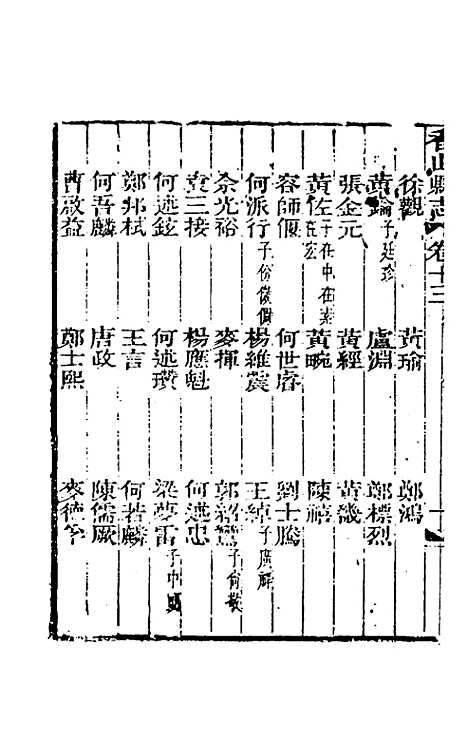 香山縣志 卷十三
徐觀 黃瑜 鄭鴻
黃鑰子廷珍 盧淵 鄭標烈
張金元 黃經 黃畿
黃佐子在中在素在宏 黃畹 陳禧
容師偃 何世膺 劉士騰
何派行子份儌價 楊維震 王綽子廣
余光裕 麥揮 郭紹 子尙敬
袁三接 楊應魁 何述忠
何述鉉 何述瓚 梁夢雷子中
鄭邦栻 王言 何若麟
何吾麟 唐政 陳儒厥
曹啟益 鄭士熙 麥德